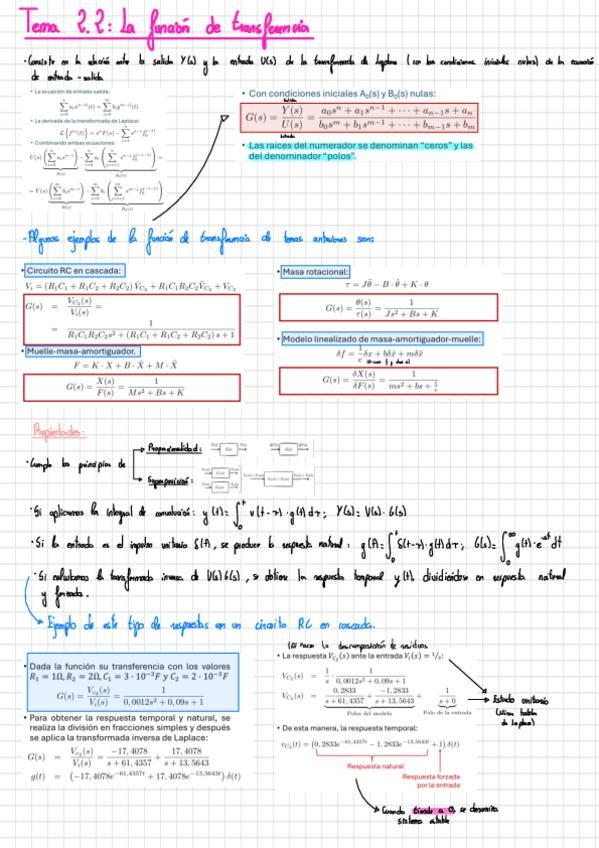 Tema 2.2: La función de transferencia
· Consiste en la relación entre la salida Y(s) y la entrada U(s) de la transformada de Laplace (con las condiciones iniciales nulas) de la ecuación
de entrada-salida
• La ecuación de entrada-salida:
• La derivada de la transformada de Laplace:
• Combinando ambas ecuaciones:
• Con condiciones iniciales A₀(s) y B₀(s) nulas:
Salida
G(s) = Y(s)/U(s) = (a₀sⁿ + a₁sⁿ⁻¹ + ··· + aₙ₋₁s + aₙ)/(b₀sᵐ + b₁sᵐ⁻¹ + ··· + bₘ₋₁s + bₘ)
Entrada
• Las raíces del numerador se denominan “ceros” y las
del denominador “polos”.
- Algunos ejemplos de la función de transferencia de temas anteriores son:
• Circuito RC en cascada:
Vᵢ = (R₁C₁ + R₁C₂ + R₂C₂) V̇c₂ + R₁C₁R₂C₂V̈c₂ + Vc₂
G(s) = Vc₂(s)/Vᵢ(s) =
= 1/(R₁C₁R₂C₂s² + (R₁C₁ + R₁C₂ + R₂C₂) s + 1)
• Muelle-masa-amortiguador.
F = K · X + B · Ẋ + M · Ẍ
G(s) = X(s)/F(s) = 1/(Ms² + Bs + K)
• Masa rotacional:
τ = Jθ̈ − B · θ̇ + K · θ
G(s) = θ(s)/τ(s) = 1/(Js² + Bs + K)
• Modelo linealizado de masa-amortiguador-muelle:
δf = 1/c δx + bδẋ + mδẍ
G(s) = δX(s)/δF(s) = 1/(ms² + bs + 1/c)
Propiedades:
· Cumple los principios de
Proporcionalidad:
Superposición:
· Si aplicamos la integral de convolución: y(t) = ∫₀ᵗ u(t-τ)·g(t)dτ; Y(s) = U(s)·G(s)
· Si la entrada es el impulso unitario δ(t), se produce la respuesta natural: g(t) = ∫₀ᵗ δ(t-τ)·g(t)dτ; G(s) = ∫₀^∞ g(t)·e⁻ˢᵗ dt
· Si calculamos la transformada inversa de U(s)G(s), se obtiene la respuesta temporal y(t), dividiéndose en respuesta natural
y forzada.
Ejemplo de este tipo de respuestas en un circuito RC en cascada.
• Dada la función su transferencia con los valores
R₁ = 1Ω, R₂ = 2Ω, C₁ = 3 · 10⁻³F y C₂ = 2 · 10⁻³F
G(s) = Vc₂(s)/Vᵢ(s) = 1/(0,0012s² + 0,09s + 1)
• Para obtener la respuesta temporal y natural, se
realiza la división en fracciones simples y después
se aplica la transformada inversa de Laplace:
G(s) = Vc₂(s)/Vᵢ(s) = −17,4078/(s + 61,4357) + 17,4078/(s + 13,5643)
g(t) = (−17,4078e⁻⁶¹,⁴³⁵⁷ᵗ + 17,4078e⁻¹³,⁵⁶⁴³ᵗ) δ(t)
hacer la descomposición de residuos
• La respuesta Vc₂(s) ante la entrada Vᵢ(s) = 1/s:
Vc₂(s) = 1/s · 1/(0,0012s² + 0,09s + 1)
Vc₂(s) = 0,2833/(s + 61,4357) + −1,2833/(s + 13,5643) + 1/(s + 0)
Polos del modelo
Polo de la entrada
Estado unitario
• De esta manera, la respuesta temporal:
vc₂(t) = (0,2833e⁻⁶¹,⁴³⁵⁷ᵗ − 1,2833e⁻¹³,⁵⁶⁴³ᵗ + 1) δ(t)
Respuesta natural
Respuesta forzada
por la entrada
Cuando tiende a 0, se denomina
sistema estable